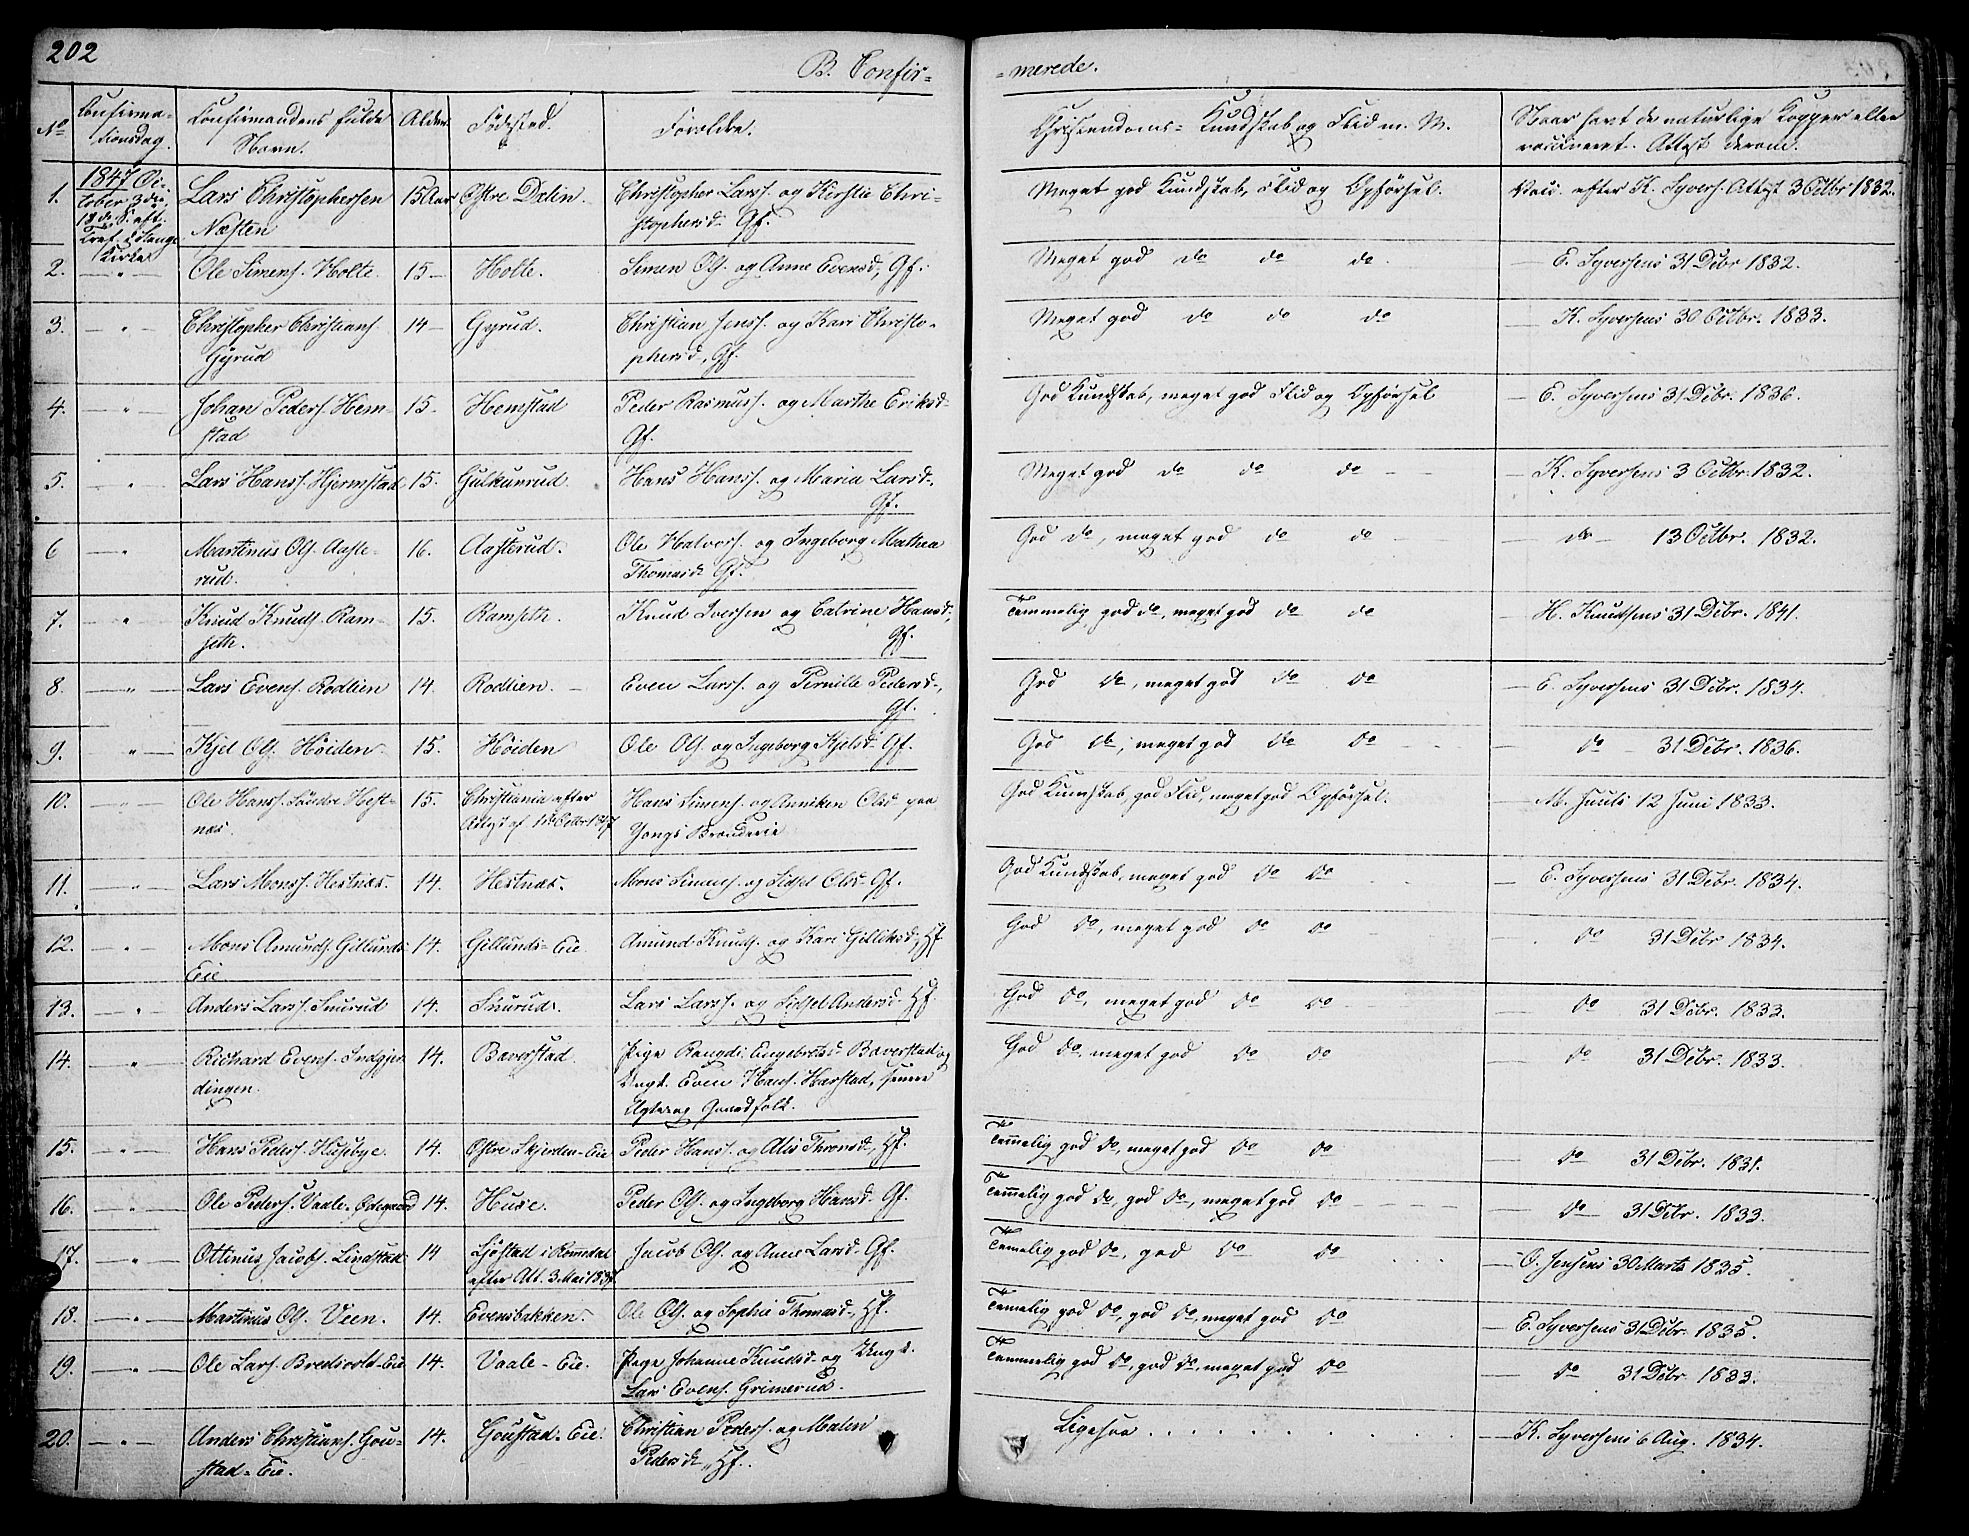 202
B. Confir=
=merede.
No
Confirma-
tionsdag.
Confirmandens fulde
Navn.
Alder
Födested.
Forældre.
Christendoms= Kundskab og Flid m. M.
Naar havt de naturlige Kopper eller
vaccineret. Attest derom.
1.
1847 Oc-
tober 3die,
18de S. eft.
Tref. i Stange
Kirke
Lars Christophersen
Næsten
15 Aar
Östre Dalin.
Christopher Larss. og Kirstie Chri=
stophersd. Gf.
Meget god Kundskab, Flid og Opförsel.
Vacc. efter K. Syvers. Attest 3 Octbr 1832.
2. — " —
Ole Simens. Holte.
15 —
Holte.
Simen Ols. og Anne Evensd., Gf.
Meget god do do do
— E. Syversens 31 Dcbr 1832.
3. — " —
Christopher Christians.
Gyrud
14 —
Gyrud.
Christian Jenss. og Kari Christo-
phersd., Gf.
Meget god do do do
— K. Syversens 30 Octbr. 1833.
4. — " —
Johan Peders. Hem-
stad
15.
Hemstad
Peder Rasmuss. og Marthe Eriksd.
Gf.
God Kundskab, meget god Flid og Opförsel
— E. Syversens 31 Dcbr. 1836.
5. "
Lars Hanss. Hjermstad
15.
Gulkunrud.
Hans Hanss. og Maria Larsd.,
Gf.
Meget god do do do —
— K. Syversens 3 Octbr. 1832.
6 — "
Martinus Ols. Aaste-
rud.
16.
Aasterud.
Ole Halvors. og Ingeborg Mathea
Thomasd. Gf.
God do, meget god do do
— do — 13 Octbr. 1832.
7. — "
Knud Knuds. Ram-
seth.
15.
Ramseth.
Knud Iversen og Catrine Hansd.,
Gf.
Temmelig god do, meget god do do
— H. Knudsens 31 Dcbr. 1841.
8. — " —
Lars Evens. Rodlien
14.
Rodlien. —
Even Larss. og Pernille Pedersd.,
Gf.
God do, meget god do do
— E. Syversens 31 Dcbr. 1834.
9. " —
Kjel Ols. Höiden
15.
Höiden
Ole Ols. og Ingeborg Kjelsd. Gf.
God do, meget god do do
— do — 31 Dcbr. 1836.
10. — " —
Ole Hanss. Söndre Hest-
næs.
15.
Christiania efter
Attest af Octbr 1847
Hans Simens. og Anniken Olsd. paa
Youngs Brænderie
God Kundskab, god Flid, meget god Opförsel.
— M. Juuls 12 Juni 1833.
11. — " —
Lars Monss. Hestnæs.
14.
Hestnæs.
Mons Simens. og Sidsel Olsd. Gf.
God Kundskab, meget god do do
— E. Syversens 31 Dcbr. 1834.
12. — " —
Mons Amunds. Gillunds
Eie
14.
Gillunds=Eie.
Amund Knuds. og Kari Gulliksd., Hf
God do, meget god do do
— do 31 Dcbr 1834.
13. — " —
Anders Larss. Snurud
14.
Snurud.
Lars Larss. og Sidsel Andersd. Hf
God do, meget god do do
— do 31 Dcbr. 1833.
14. — " —
Richard Evens. Indgjer-
dingen.
14.
Baverstad.
Pige Rangdi Engebretsd. Baverstad og
Ungk. Even Hans. Harstad, senere
Ægtepar Gaardfolk.
God do, meget god do do
— do 31 Dcbr. 1833.
15. — " —
Hans Peders. Husebye.
14.
Östre Skjerden=Eie
Peder Hanss. og Alis Thronsd., Hf.
Temmelig god do, meget god do do
— do 31 Dcbr. 1831.
16. — " —
Ole Peders. Vaale=Ödegaard
14.
Huse.
Peder Ols. og Ingeborg Hansd. Gf.
Temmelig god do, god do, meget god do — — — —
— do — 31 Dcbr. 1833.
17. — " —
Ottinus Jacobs. Lindstad
14
Ljöstad i Romedal
efter Att. 3 Mai 183
Jacob Ols. og Anne Larsd. Gf.
Temelig god do, god do do . . .
— O. Jensens 30 Marts 1835.
18. — " —
Martinus Ols. Veen.
14.
Evensbakken.
Ole Ols. og Sophie Thomasd., Hf.
Temelig god do, god do, meget god do
— E. Syversens 31 Dcbr. 1835.
19. — " —
Ole Lars. Bredvold=Eie
14.
Vaale=Eie.
Pige Johanne Knudsd. og Ungk.
Lars Evens. Grimerud.
Temmelig god do, god do, meget god do
— do 31 Dcbr. 1833.
20. — " —
Anders Christians. Gou-
stad=Eie.
14.
Goustad=Eie.
Christian Peders. og Malen
Pedersd., Hf.
Ligesaa . . . . . . . .
— K. Syversens 6 Aug. 1834.